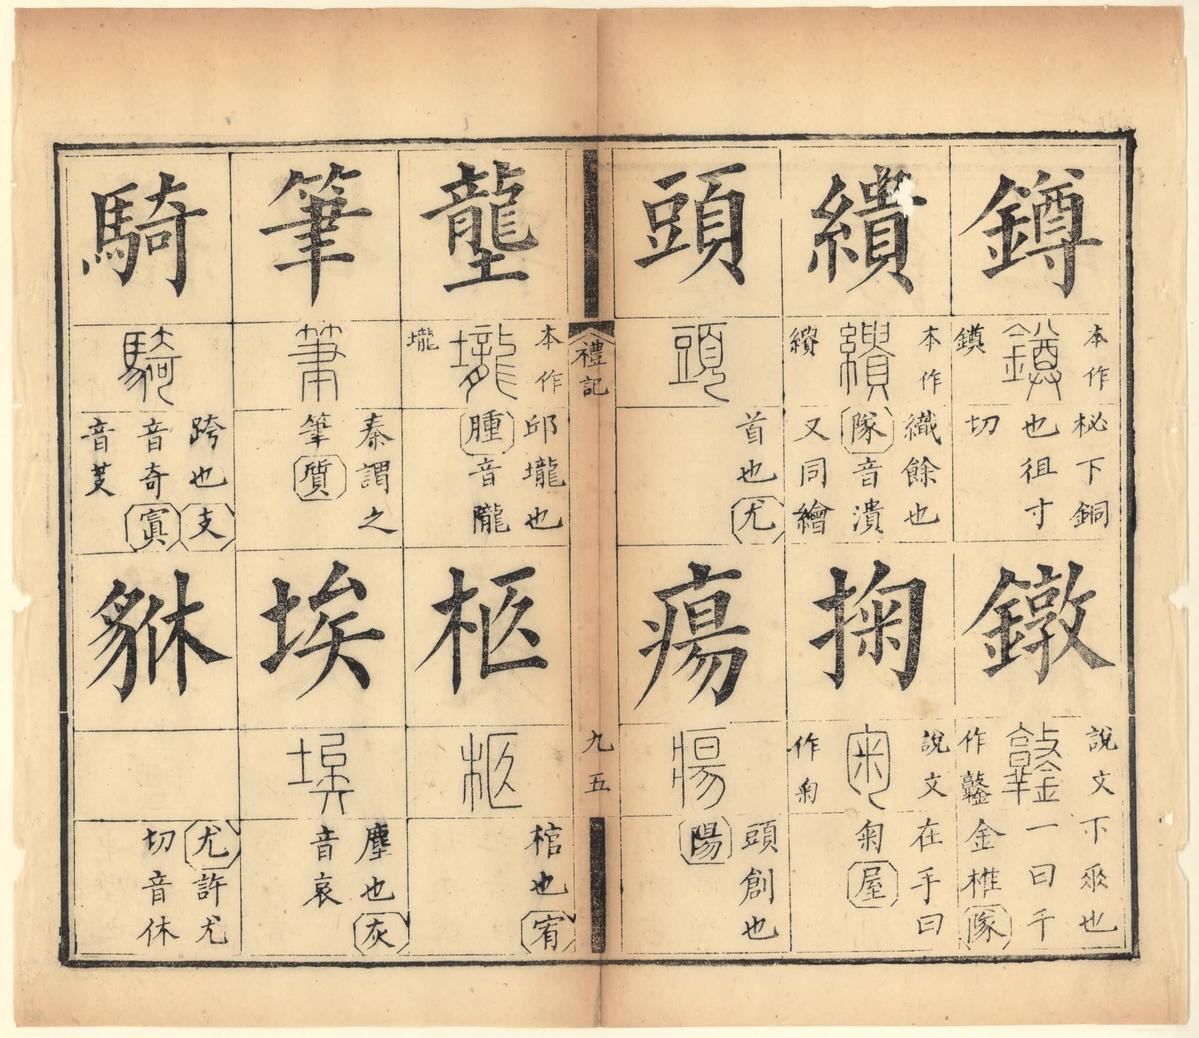 鐏
本作
鐏
柲下銅
也徂寸
切
鐓
說文
作鐜
下垂也
一曰千
金椎 隊
繢
本作
繢
織餘也
隊 音潰
又同繪
掬
說文
作匊
在手曰
匊 屋
頭
頭
首也 尤
瘍
瘍
頭創也
陽
禮記
九五
壟
本作
壠
壠
邱壠也
腫 音隴
柩
柩
棺也 宥
筆
筆
秦謂之
筆 質
埃
埃
塵也 灰
音哀
騎
騎
跨也 支
音奇 寘
音芰
貅
尤 許尤
切音休